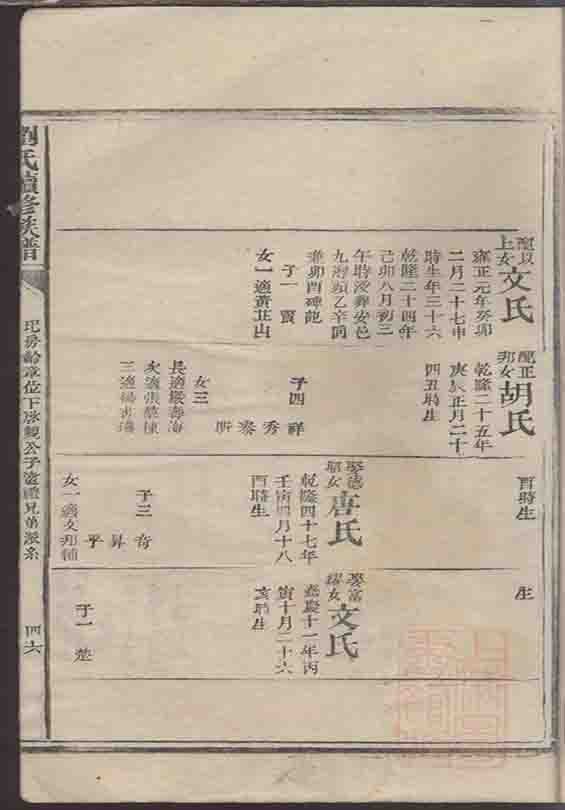 配以
上女
文氏
雍正元年癸卯
二月二十七申
時生年三十六
乾隆二十四年
己卯八月初三
午時歿葬安邑
九
乙辛
兼卯酉碑
子一 賈
女一適黃芷山
配正
邦女
胡氏
乾隆二十五年
庚辰正月二十
四丑時生
子四 祥
秀
泰
昕
女三
長適嚴壽海
次適張慧棟
三適楊
酉時生
娶德
昭女
唐氏
乾隆四十七年
壬寅四月十八
酉時生
子三 奇
昇
平
女一適文邦輔
生
娶富
文氏
嘉慶十一年丙
寅十月二十六
亥時生
子一 楚
劉氏續修族譜
玘房齡章位下
公子
禮兄弟派系
四六